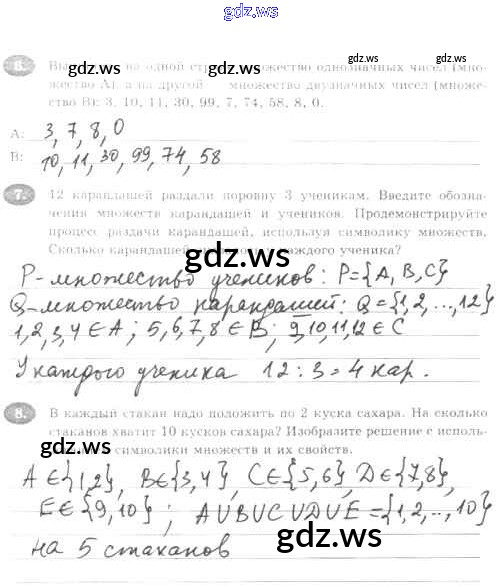 gdz.ws
gdz.ws gdz.ws
6. на одной множество однозначных чисел (мно-
жество А), а на другой множество двузначных чисел (множе-
ство В): 3, 10, 11, 30, 99, 7, 74, 58, 8, 0.
А: 3, 7, 8, 0
В: 10, 11, 30, 99, 74, 58
7. 12 карандашей раздали поровну 3 ученикам. Введите обозна-
чения множеств карандашей и учеников. Продемонстрируйте
процесс раздачи карандашей, используя символику множеств.
Сколько карандашей у каждого ученика?
gdz.ws gdz.ws
P - множество учеников: P={A, B, C}
Q - множество карандашей: Q = {1, 2, ..., 12}
1, 2, 3, 4 ∈ A ; 5, 6, 7, 8 ∈ B ; 9, 10, 11, 12 ∈ C
gdz.ws
У каждого ученика 12 : 3 = 4 кар.
8. В каждый стакан надо положить по 2 куска сахара. На сколько
стаканов хватит 10 кусков сахара? Изобразите решение с исполь-
символики множеств и их свойств.
gdz.ws gdz.ws
A ∈ {1, 2}, B ∈ {3, 4}, C ∈ {5, 6}, D ∈ {7, 8},
E ∈ {9, 10} ; A∪B∪C∪D∪E = {1, 2, ..., 10}
на 5 стаканов
gdz.ws